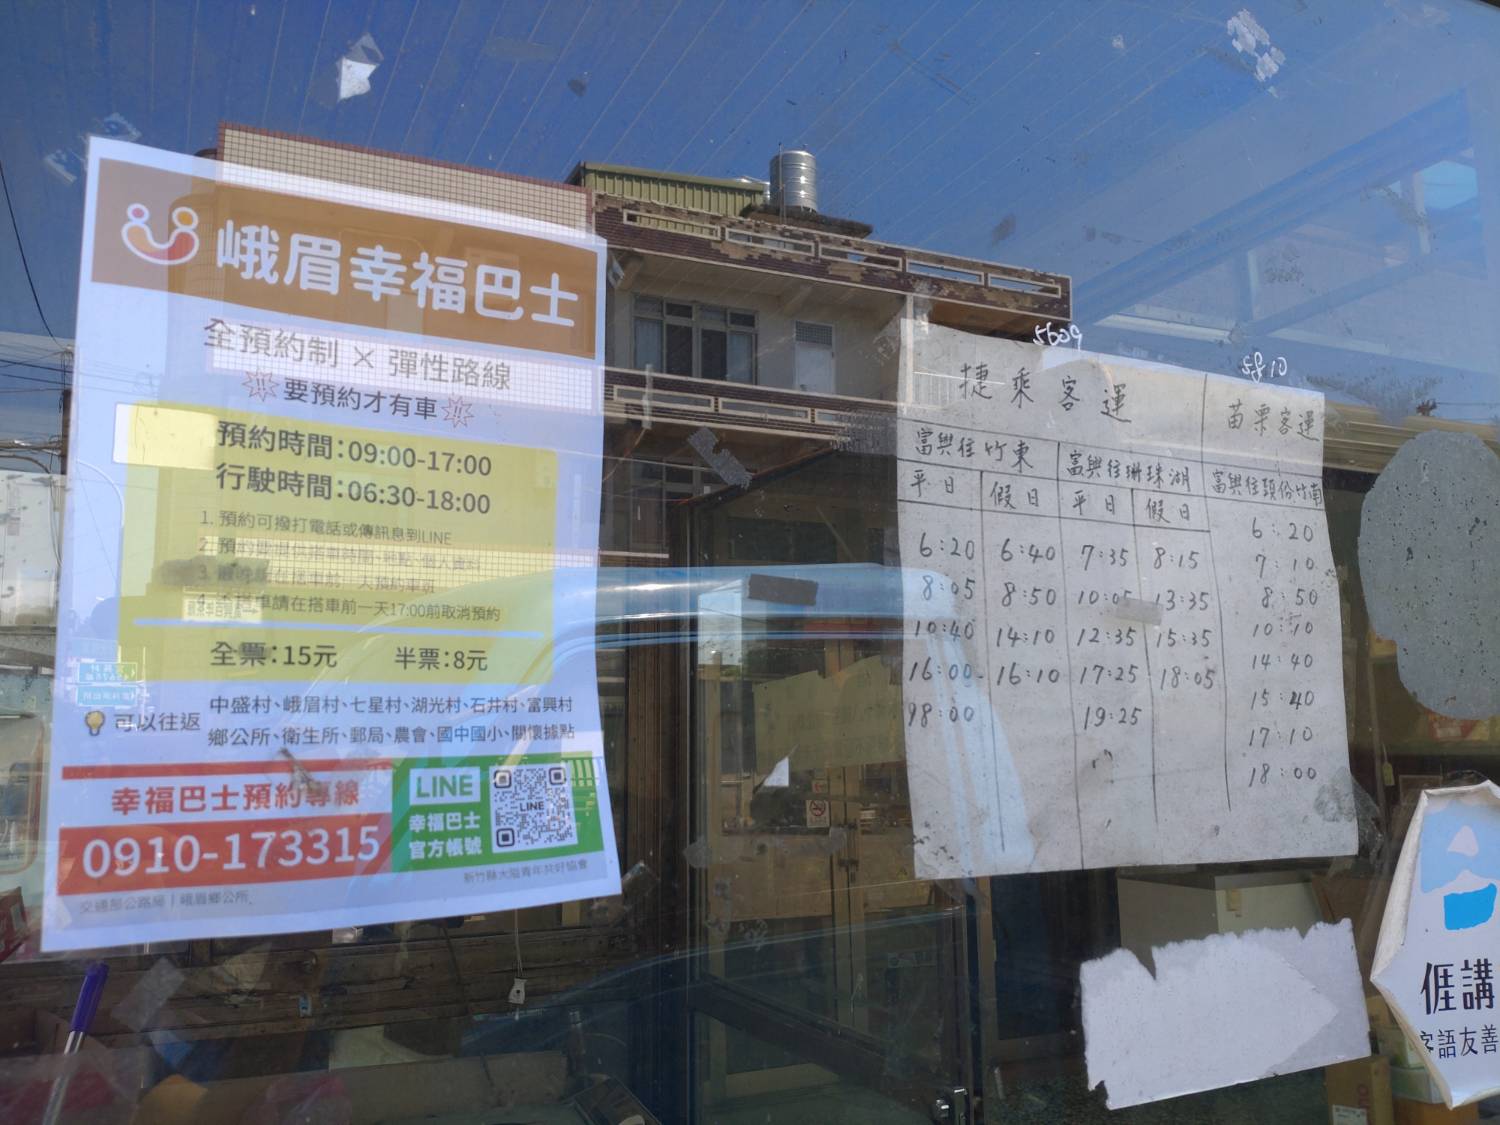 峨眉幸福巴士
全預約制 × 彈性路線
要預約才有車
預約時間：09:00-17:00
行駛時間：06:30-18:00
1. 預約可撥打電話或傳訊息到LINE
搭車請在搭車前一天17:00前取消預約
全票：15元 半票：8元
可以往返
中盛村、峨眉村、七星村、湖光村、石井村、富興村
鄉公所、衛生所、郵局、農會、國中國小、關懷據點
幸福巴士預約專線
0910-173315
LINE
幸福巴士
官方帳號
LINE
新竹縣大隘青年共好協會
交通部公路局｜峨眉鄉公所
5609
5810
捷乘客運 苗栗客運
富興往竹東 富興往珊珠湖 富興往頭份竹南
平日 假日 平日 假日
6:20 6:40 7:35 8:15 6:20
8:05 8:50 10:05 13:35 7:10
10:40 14:10 12:35 15:35 8:50
16:00 16:10 17:25 18:05 10:10
98:00 19:25 14:40
15:40
17:10
18:00
𠊎講
客語友善